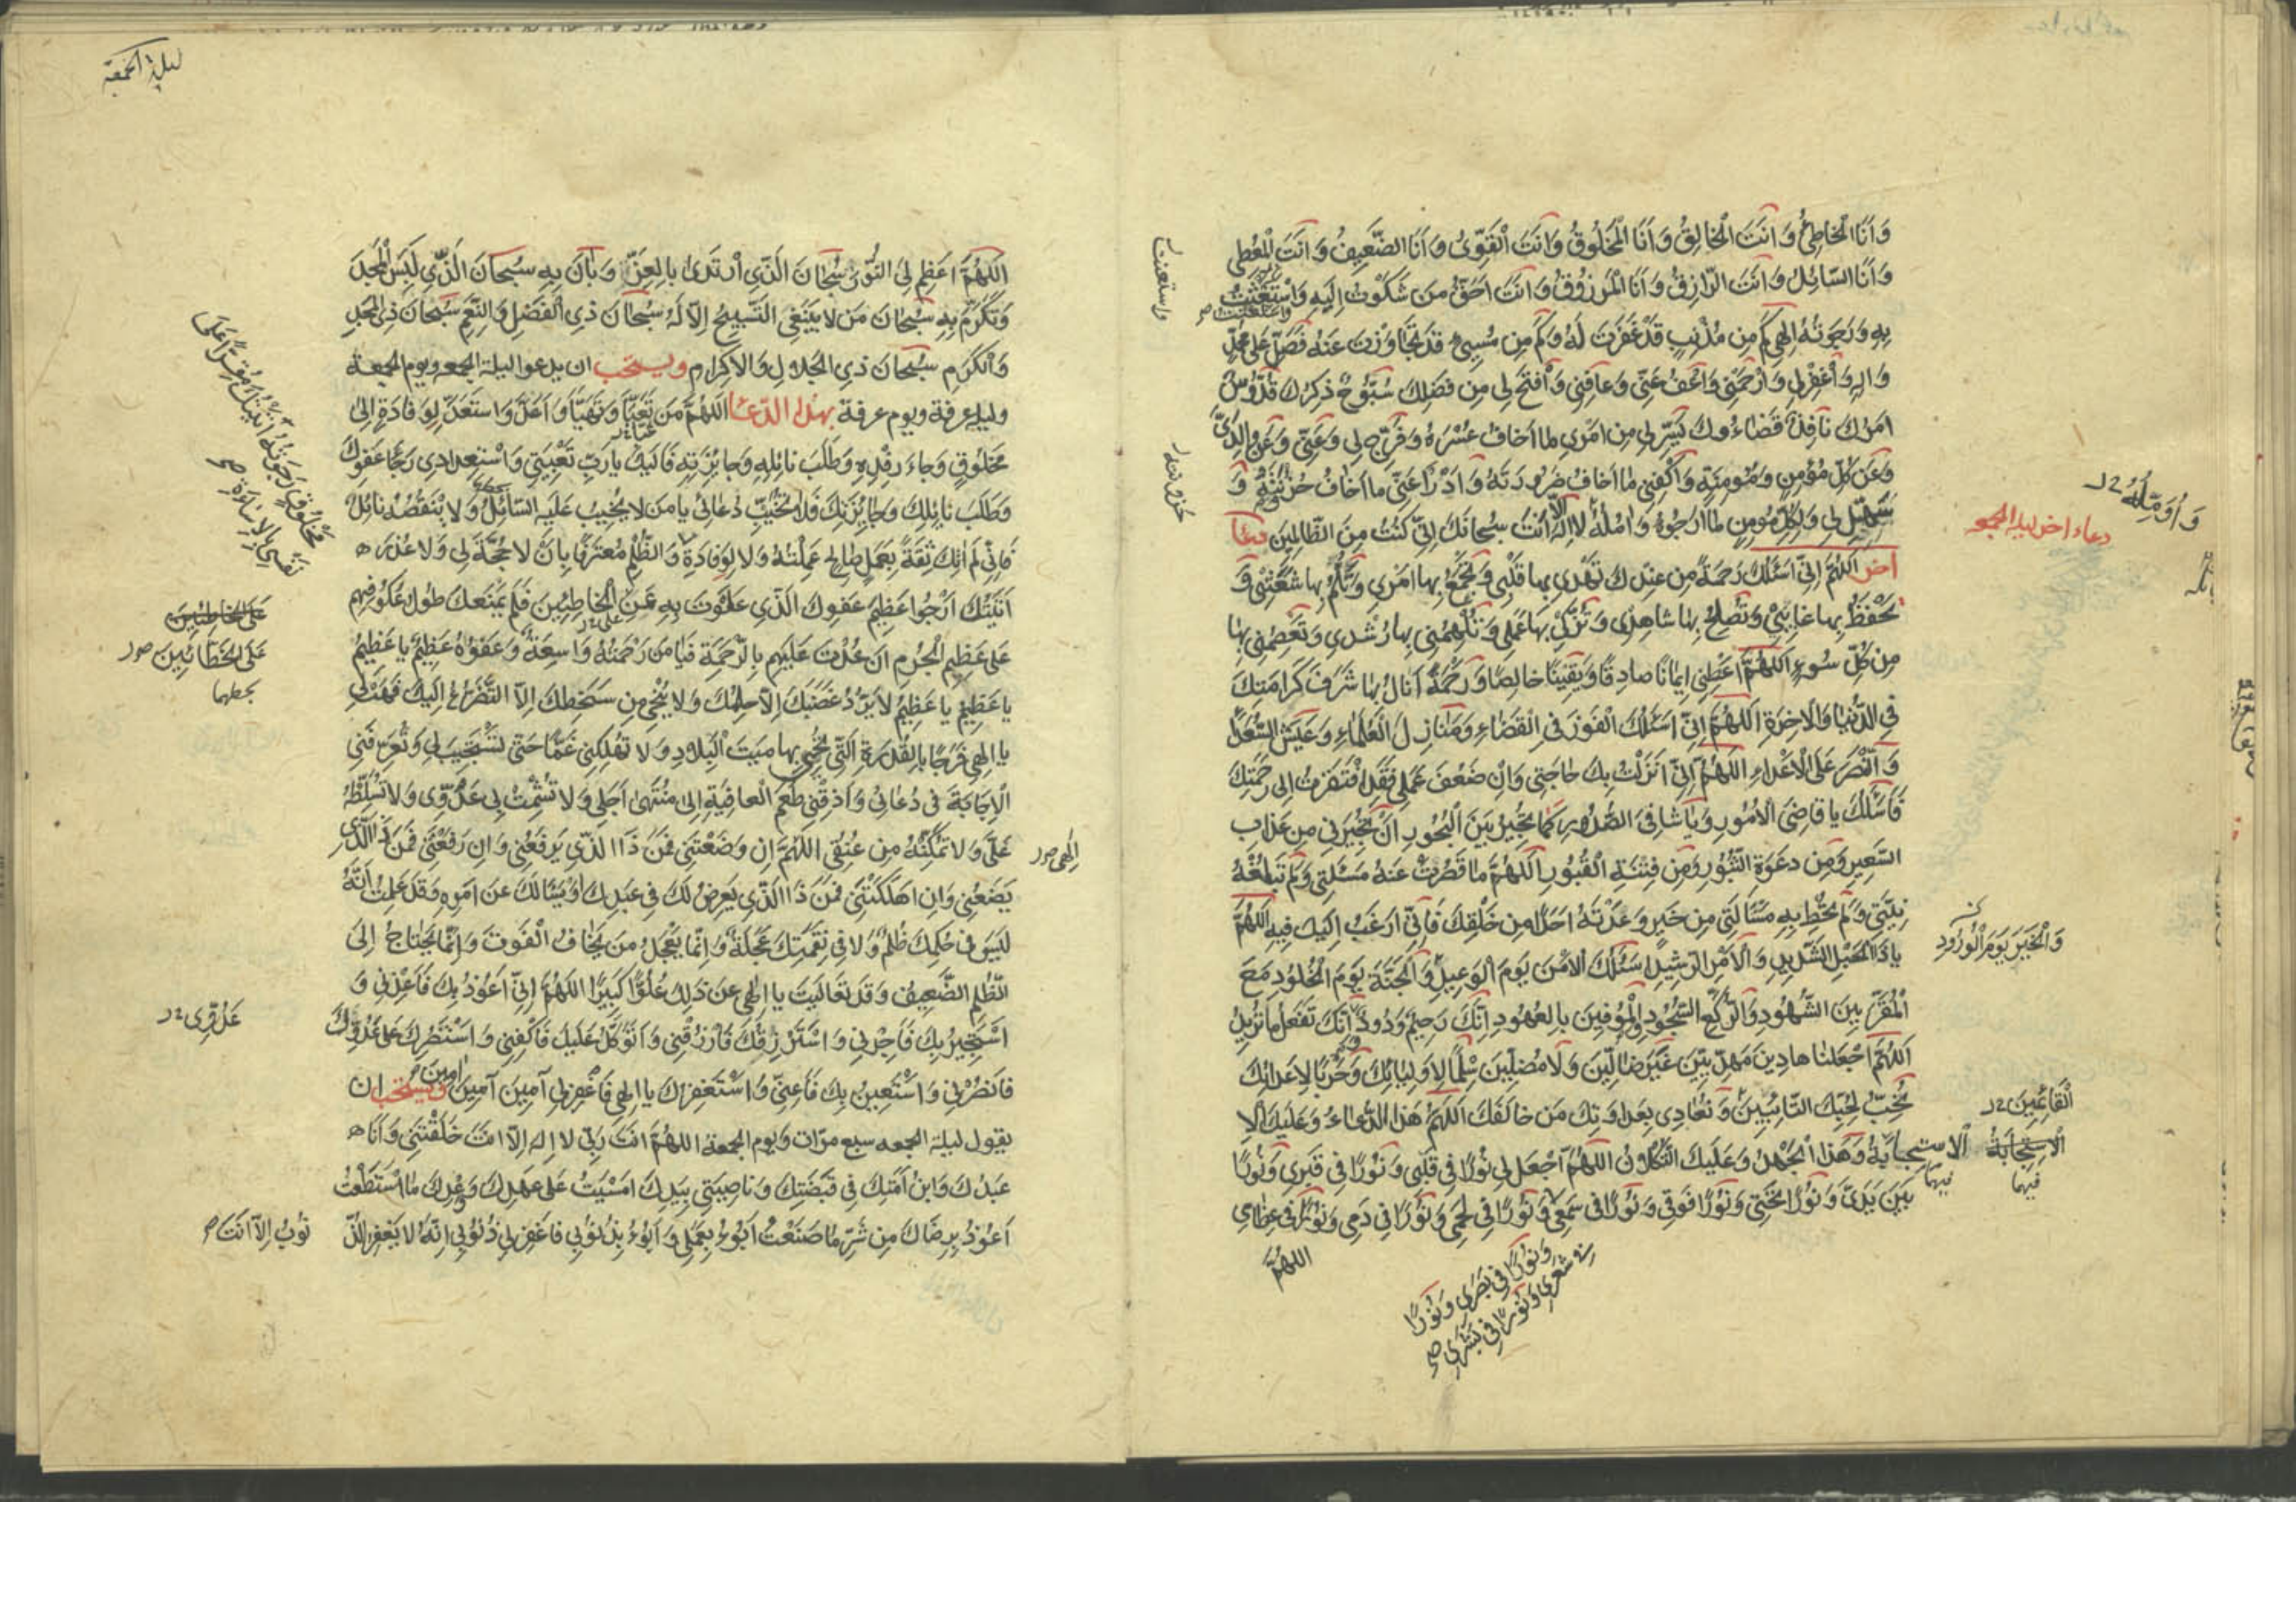 وَاَنَا الْخَاطِئُ وَاَنْتَ الْخَالِقُ وَاَنَا الْمَخْلُوقُ وَاَنْتَ الْقَوِىُّ وَاَنَا الضَّعِيفُ وَاَنْتَ الْمُعْطِى
وَاَنَا السَّائِلُ وَاَنْتَ الرَّازِقُ وَاَنَا الْمَرْزُوقُ وَاَنْتَ اَحَقُّ مَنْ شَكَوْتُ اِلَيْهِ وَاسْتَغَثْتُ
بِهِ وَرَجَوْتُهُ اِلٰهِى كَمْ مِنْ مُذْنِبٍ قَدْ غَفَرْتَ لَهُ وَكَمْ مِنْ مُسِىءٍ قَدْ تَجَاوَزْتَ عَنْهُ فَصَلِّ عَلٰى مُحَمَّدٍ
وَاٰلِهِ وَاغْفِرْلِى وَارْحَمْنِى وَاعْفُ عَنِّى وَعَافِنِى وَافْتَحْ لِى مِنْ فَضْلِكَ سُبُّوحٌ ذِكْرُكَ قُدُّوسٌ
اَمْرُكَ نَافِذٌ قَضَاءُوكَ يَسِّرْ لِى مِنْ اَمْرِى مَا اَخَافُ عُسْرَهُ وَفَرِّجْ لِى وَعَنِّى وَعَنْ وَالِدَىَّ
وَعَنْ كُلِّ مُؤْمِنٍ وَمُؤْمِنَةٍ وَاكْفِنِى مَا اَخَافُ ضَرُورَتَهُ وَادْرَأْ عَنِّى مَا اَخَافُ حُزُنَتَهُ وَ
سَهِّلْ لِى وَلِكُلِّ مُؤْمِنٍ مَا اَرْجُوهُ وَاٰمُلُهُ لَا اِلٰهَ اِلَّا اَنْتَ سُبْحَانَكَ اِنِّى كُنْتُ مِنَ الظَّالِمِينَ دعا
اخر اَللّٰهُمَّ اِنِّى اَسْئَلُكَ رَحْمَةً مِنْ عِنْدِكَ تَهْدِى بِهَا قَلْبِى وَتَجْمَعُ بِهَا اَمْرِى وَتَلُمُّ بِهَا شَعَثِى وَ
تَحْفَظُ بِهَا غَائِبِى وَتُصْلِحُ بِهَا شَاهِدِى وَتُزَكِّى بِهَا عَمَلِى وَتُلْهِمُنِى بِهَا رُشْدِى وَتَعْصِمُنِى بِهَا
مِنْ كُلِّ سُوءٍ اَللّٰهُمَّ اَعْطِنِى اِيمَانًا صَادِقًا وَيَقِينًا خَالِصًا وَرَحْمَةً اَنَالُ بِهَا شَرَفَ كَرَامَتِكَ
فِى الدُّنْيَا وَالْاٰخِرَةِ اَللّٰهُمَّ اِنِّى اَسْئَلُكَ الْفَوْزَ فِى الْقَضَاءِ وَمَنَازِلَ الْعُلَمَاءِ وَعَيْشَ السُّعَدَاءِ
وَالنَّصْرَ عَلَى الْاَعْدَاءِ اَللّٰهُمَّ اِنِّى اَنْزَلْتُ بِكَ حَاجَتِى وَاِنْ ضَعُفَ عَمَلِى فَقَدِ افْتَقَرْتُ اِلٰى رَحْمَتِكَ
فَاَسْئَلُكَ يَا قَاضِىَ الْاُمُورِ وَيَا شَافِىَ الصُّدُورِ كَمَا تُجِيرُ بَيْنَ الْبُحُورِ اَنْ تُجِيرَنِى مِنْ عَذَابِ
السَّعِيرِ وَمِنْ دَعْوَةِ الثُّبُورِ وَمِنْ فِتْنَةِ الْقُبُورِ اَللّٰهُمَّ مَا قَصُرَتْ عَنْهُ مَسْئَلَتِى وَلَمْ تَبْلُغْهُ
نِيَّتِى وَلَمْ تُحِطْ بِهِ مَسْئَالَتِى مِنْ خَيْرٍ وَعَدْتَهُ اَحَدًا مِنْ خَلْقِكَ فَاِنِّى اَرْغَبُ اِلَيْكَ فِيهِ اَللّٰهُمَّ
يَا ذَا الْحَبْلِ الشَّدِيدِ وَالْاَمْرِ الرَّشِيدِ اَسْئَلُكَ الْاَمْنَ يَوْمَ الْوَعِيدِ وَالْجَنَّةَ يَوْمَ الْخُلُودِ مَعَ
الْمُقَرَّبِينَ الشُّهُودِ وَالرُّكَّعِ السُّجُودِ وَالْمُوفِينَ بِالْعُهُودِ اِنَّكَ رَحِيمٌ وَدُودٌ اِنَّكَ تَفْعَلُ مَا تُرِيدُ
اَللّٰهُمَّ اجْعَلْنَا هَادِينَ مَهْدِيِّينَ غَيْرَ ضَالِّينَ وَلَا مُضِلِّينَ سِلْمًا لِاَوْلِيَائِكَ وَحَرْبًا لِاَعْدَائِكَ
نُحِبُّ لِحُبِّكَ التَّائِبِينَ وَنُعَادِى بِعَدَاوَتِكَ مَنْ خَالَفَكَ اَللّٰهُمَّ هٰذَا الدُّعَاءُ وَعَلَيْكَ الا
الاستجابةُ وَهٰذَا الْجُهْدُ وَعَلَيْكَ التُّكْلَانُ اَللّٰهُمَّ اجْعَلْ لِى نُورًا فِى قَلْبِى وَنُورًا فِى قَبْرِى وَنُورًا
بَيْنَ يَدَىَّ وَنُورًا تَحْتِى وَنُورًا فَوْقِى وَنُورًا فِى سَمْعِى وَنُورًا فِى لَحْمِى وَنُورًا فِى دَمِى وَنُورًا فِى عِظَامِى
وَنُورًا فِى بَصَرِى وَنُورًا
فى شَعْرِى وَنُورًا فِى بَشَرِى صح
اللهُمَّ
واستعنت
وَاُوَمِّلُهُ
دعاء اخر ليلة الجمعه
وَالْخَيْرَ يَوْمَ الْوُرُودِ
الْاِسْتِجَابَةُ
فيهما
ليلة الجمعة
اَللّٰهُمَّ اَعْظِمْ لِىَ النُّورَ سُبْحَانَ الَّذِى ارْتَدٰى بِالْعِزِّ وَبَانَ بِهِ سُبْحَانَ الَّذِى لَبِسَ الْمَجْدَ
وَتَكَرَّمَ بِهِ سُبْحَانَ مَنْ لَا يَنْبَغِى التَّسْبِيحُ اِلَّا لَهُ سُبْحَانَ ذِى الْفَضْلِ وَالنِّعَمِ سُبْحَانَ ذِى الْمَجْدِ
وَالْكَرَمِ سُبْحَانَ ذِى الْجَلَالِ وَالْاِكْرَامِ ويستحب ان يدعوا ليلة الجمعه ويوم الجمعة
وليلة عرفة ويوم عرفة بهذا الدّعا اَللّٰهُمَّ مَنْ تَعَبَّأَ وَتَهَيَّأَ وَاَعَدَّ وَاسْتَعَدَّ لِوِفَادَةٍ اِلٰى
مَخْلُوقٍ رَجَاءَ رِفْدِهِ وَطَلَبَ نَائِلِهِ وَجَائِزَتِهِ فَاِلَيْكَ يَا رَبِّ تَعْبِيَتِى وَاسْتِعْدَادِى رَجَاءَ عَفْوِكَ
وَطَلَبَ نَائِلِكَ وَجَائِزَتِكَ فَلَا تُخَيِّبْ دُعَائِى يَا مَنْ لَا يَخِيبُ عَلَيْهِ السَّائِلُ وَلَا يَنْقُصُهُ نَائِلٌ
فَاِنِّى لَمْ اٰتِكَ ثِقَةً بِعَمَلٍ صَالِحٍ عَمِلْتُهُ وَلَا لِوِفَادَةِ وَالظُّلْمِ مُعْتَرِفًا بِاَنْ لَا حُجَّةَ لِى وَلَا عُذْرَ
اَتَيْتُكَ اَرْجُوا عَظِيمَ عَفْوِكَ الَّذِى عَلَوْتَ بِهِ عَنِ الْخَاطِئِينَ فَلَمْ يَمْنَعْكَ طُولُ عُكُوفِهِمْ
عَلٰى عَظِيمِ الْجُرْمِ اَنْ عُدْتَ عَلَيْهِمْ بِالرَّحْمَةِ فَيَا مَنْ رَحْمَتُهُ وَاسِعَةٌ وَعَفْوُهُ عَظِيمٌ يَا عَظِيمُ
يَا عَظِيمُ يَا عَظِيمُ لَا يَرُدُّ غَضَبَكَ اِلَّا حِلْمُكَ وَلَا يُنْجِى مِنْ سَخَطِكَ اِلَّا التَّضَرُّعُ اِلَيْكَ فَهَبْ لِى
يَا اِلٰهِى فَرَجًا بِالْقُدْرَةِ الَّتِى تُحْيِى بِهَا مَيْتَ الْبِلَادِ وَلَا تُهْلِكْنِى غَمًّا حَتّٰى تَسْتَجِيبَ لِى وَتُعَرِّفَنِى
الْاِجَابَةَ فِى دُعَائِى وَاَذِقْنِى طَعْمَ الْعَافِيَةِ اِلٰى مُنْتَهٰى اَجَلِى وَلَا تُشْمِتْ بِى عَدُوِّى وَلَا تُسَلِّطْهُ
عَلَىَّ وَلَا تُمَكِّنْهُ مِنْ عُنُقِى اَللّٰهُمَّ اِنْ وَضَعْتَنِى فَمَنْ ذَا الَّذِى يَرْفَعُنِى وَاِنْ رَفَعْتَنِى فَمَنْ ذَا الَّذِى
يَضَعُنِى وَاِنْ اَهْلَكْتَنِى فَمَنْ ذَا الَّذِى يَعْرِضُ لَكَ فِى عَبْدِكَ اَوْ يَسْئَالُكَ عَنْ اَمْرِهِ وَقَدْ عَلِمْتُ اَنَّهُ
لَيْسَ فِى حُكْمِكَ ظُلْمٌ وَلَا فِى نَقِمَتِكَ عَجَلَةٌ وَاِنَّمَا يَعْجَلُ مَنْ يَخَافُ الْفَوْتَ وَاِنَّمَا يَحْتَاجُ اِلَى
الظُّلْمِ الضَّعِيفُ وَقَدْ تَعَالَيْتَ يَا اِلٰهِى عَنْ ذٰلِكَ عُلُوًّا كَبِيرًا اَللّٰهُمَّ اِنِّى اَعُوذُ بِكَ فَاَعِذْنِى وَ
اَسْتَجِيرُ بِكَ فَاَجِرْنِى وَاَسْتَرْزِقُكَ فَارْزُقْنِى وَاَتَوَكَّلُ عَلَيْكَ فَاكْفِنِى وَاَسْتَنْصِرُكَ عَلٰى عَدُوِّكَ
فَانْصُرْنِى وَاَسْتَعِينُ بِكَ فَاَعِنِّى وَاَسْتَغْفِرُكَ يَا اِلٰهِى فَاغْفِرْلِى آمِينَ آمِينَ امين ويستحب ان
يقول ليلة الجمعه سبع مرّات وَيوم الجمعة اللهُمَّ اَنْتَ رَبِّى لَا اِلٰهَ اِلَّا اَنْتَ خَلَقْتَنِى وَاَنَا
عَبْدُكَ وَابْنُ اَمَتِكَ فِى قَبْضَتِكَ وَنَاصِيَتِى بِيَدِكَ اَمْسَيْتُ عَلٰى عَهْدِكَ وَوَعْدِكَ مَا اسْتَطَعْتُ
اَعُوذُ بِرِضَاكَ مِنْ شَرِّ مَا صَنَعْتُ اَبُوءُ بِعَمَلِى وَاَبُوءُ بِذُنُوبِى فَاغْفِرْلِى ذُنُوبِى اِنَّهُ لَا يَغْفِرُ الذّ
نُوبَ اِلَّا اَنْتَ
مَخْلُوقٍ رَجَوْتُهُ اَتَيْتُكَ مُقِرًّا عَلٰى
نَفْسِى بِالْاِسَاءَةِ صح
عَلَى الْخَاطِئِينَ
عَلَى الْخَطَّائِينَ
بخطهما
اِلٰهِى
عَدُوِّى